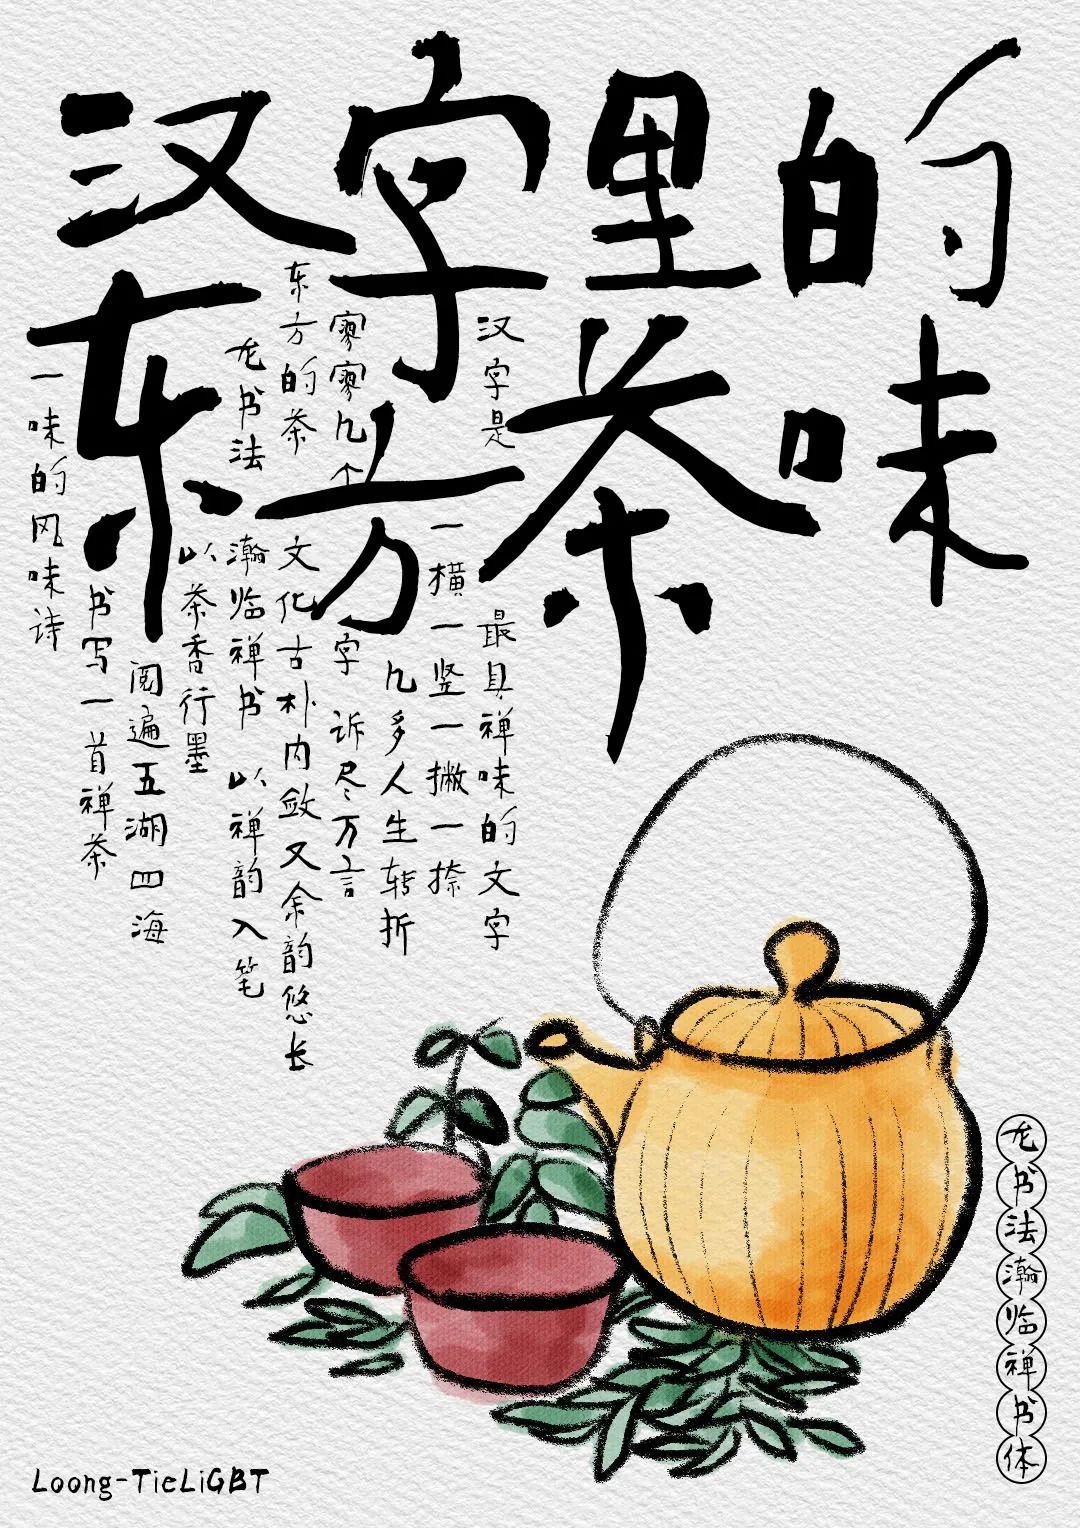 汉字里的
东方茶味
汉字是 最具禅味的文字
一横一竖一撇一捺
几多人生转折
寥寥几个字 诉尽万言
东方的茶文化古朴内敛又余韵悠长
龙书法瀚临禅书 以禅韵入笔
以茶香行墨
阅遍五湖四海
书写一首禅茶
一味的风味诗
龙书法瀚临禅书体
Loong-TieLiGBT